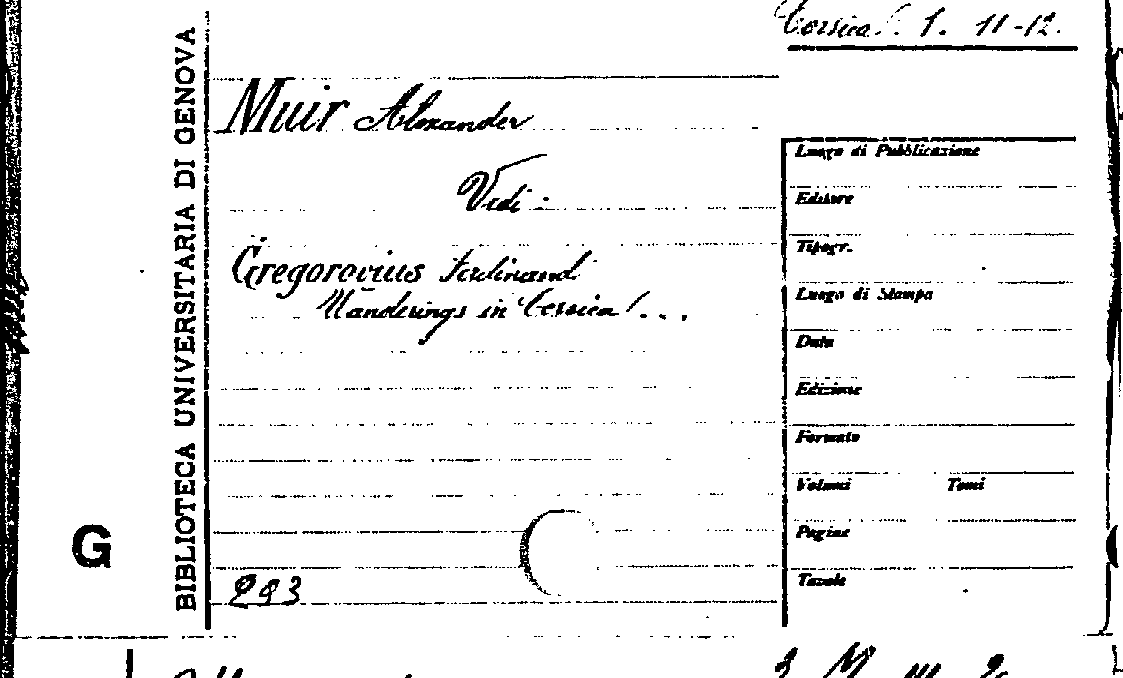 Corsica C. 1. 11-12.
Muir Alexander
Vedi:
Gregorovius Ferdinand
Wanderings in Corsica! . . .
293
BIBLIOTECA UNIVERSITARIA DI GENOVA
G
Luogo di Pubblicazione
Editore
Tipogr.
Luogo di Stampa
Data
Edizione
Formato
Volumi Tomi
Pagine
Tavole